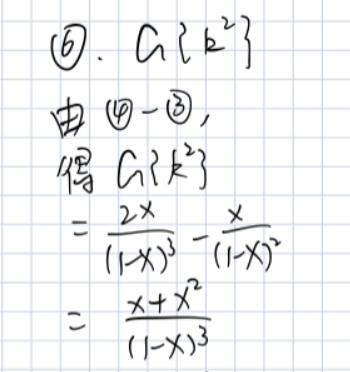 ⑥. G{k²}
由 ④-③,
得 G{k²}
= 2x/(1-x)³ - x/(1-x)²
= x+x²/(1-x)³